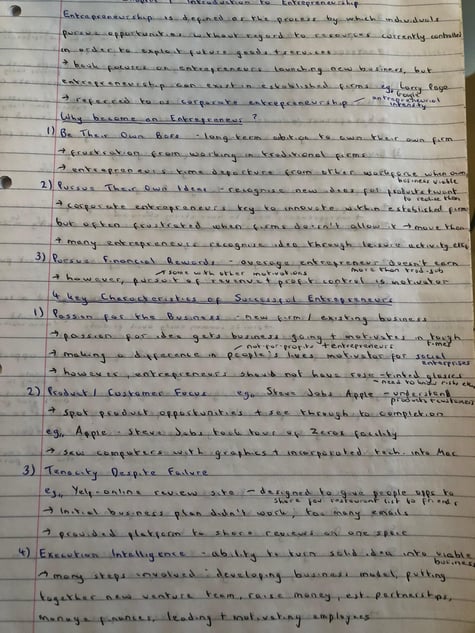 Chapter 1 Introduction to Entrepreneurship
Entrepreneurship is defined as the process by which individuals
pursue opportunities without regard to resources currently controlled
in order to exploit future goods + services
→ book focuses on entrepreneurs launching new business, but
entrepreneurship can exist in established firms eg, Larry Page
Google
→ referred to as corporate entrepreneurship / entrepreneurial
intensity
Why become an Entrepreneur?
1) Be Their Own Boss - long term abition to own their own firm
→ frustration from working in traditional firms
→ entrepreneurs time departure from other workforce when own
business viable
2) Pursue Their Own Ideas - recognise new ideas for products + want
to realise them
→ corporate entrepreneurs try to innovate within established firms
but often frustrated when firms doesn't allow it → move than
→ many entrepreneurs recognise idea through leisure activity,
3) Pursue Financial Rewards - average entrepreneur doesn't earn
more than trad. job
→ some with other motivations
→ however, pursuit of profit control is motivator
4 key Characteristics of Successful Entrepreneurs
1) Passion for the Business - new firm / existing business
→ passion for idea gets business going + motivates in tough
times
/ not-for-profits + entrepreneurs
→ making a difference in people's lives motivator for social
enterprises
→ however, entrepreneurs should not have rose-tinted glasses
- need to know risks
2) Product / Customer Focus eg, Steve Jobs Apple - understand
products + customers
→ spot product opportunities + see through to completion
eg, Apple - Steve Jobs took tour of Zerox facility
→ saw computers with graphics + incorporated tech. into Mac
3) Tenacity Despite Failure
eg, Yelp - online review site - designed to give people opps to
share fav restaurant list to friends
→ Initial business plan didn't work, too many emails
→ provided platform to share reviews on one space
4) Execution Intelligence - ability to turn solid idea into viable
business
→ many steps involved: developing business model, putting
together new venture team, raise money, est. partnerships,
manage finances, leading + motivating employees